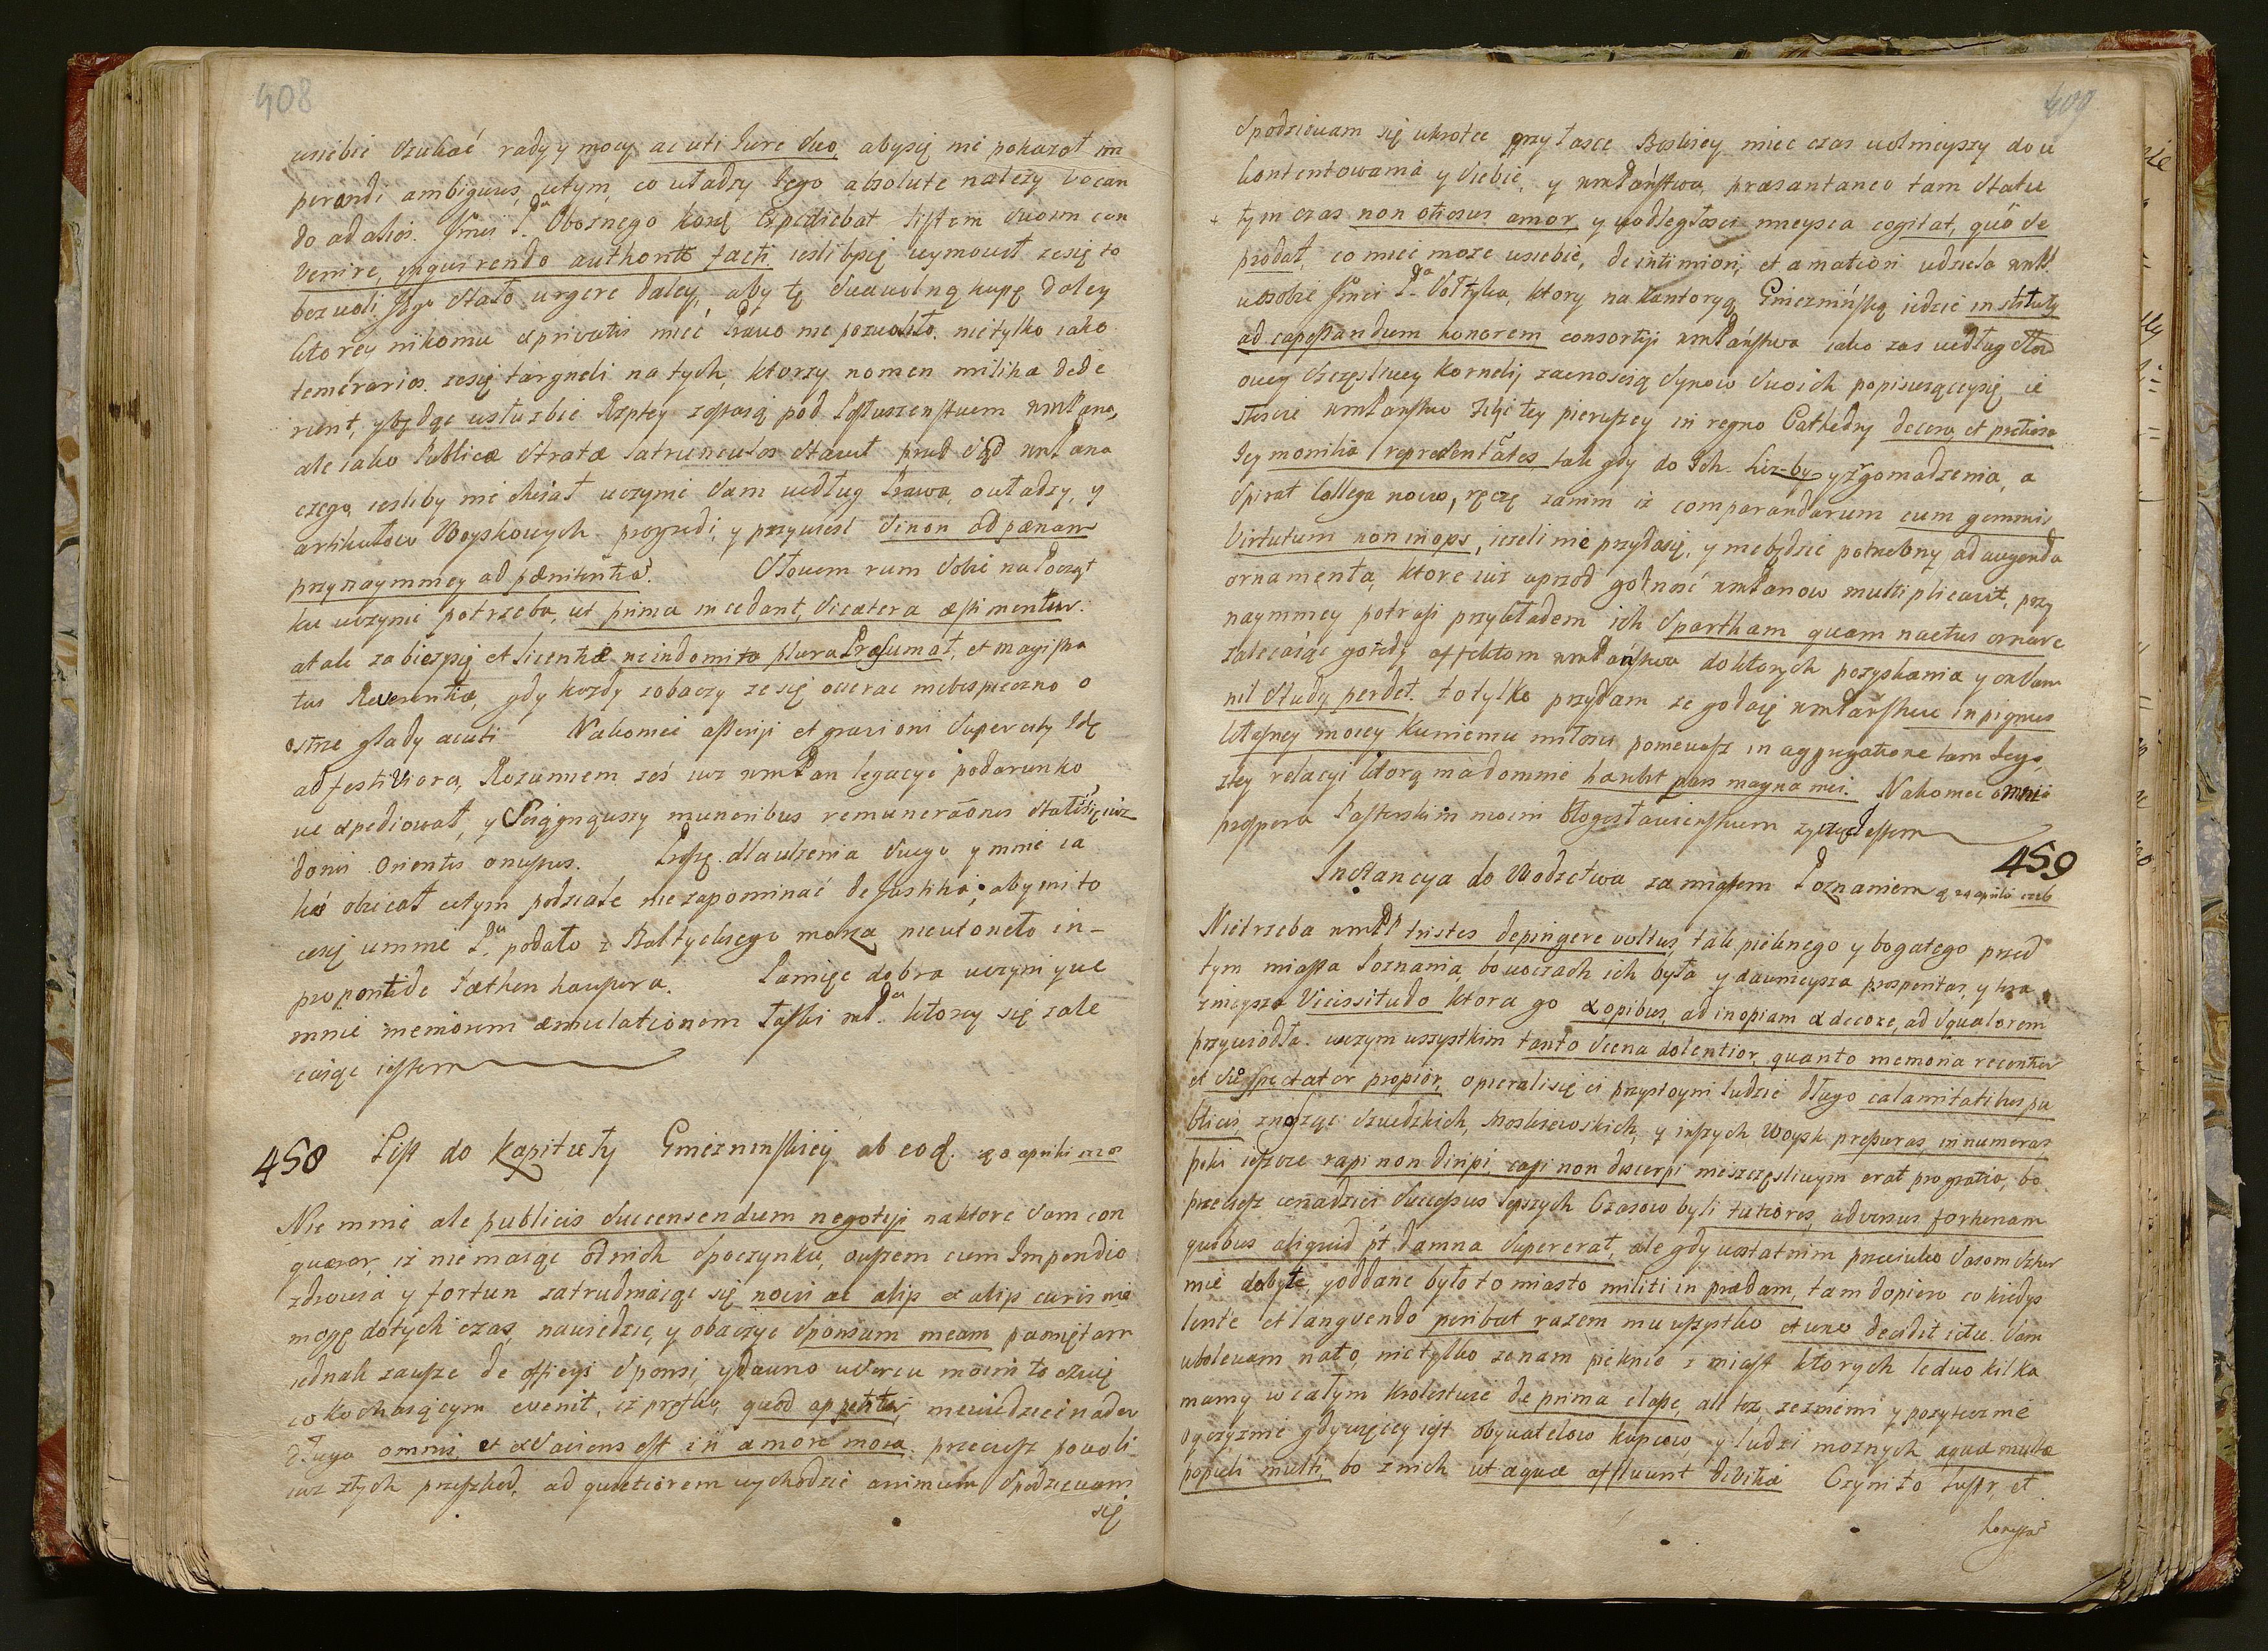 408
usiebie szukać rady y mocy ac uti Jure suo, abysię nie pokazał im
perandi ambiguus, wtym, co władzy Jego absolute należy vocan
do ad alios. Jmci Pa Oboznego kosz Expediebat listem suoem con
venire, inquirendo authore facti ieslibysię wymowił zesię to
bez woli Jego stało urgere daley, aby tę suawolną kupę daley
ktorey nikomu ex privatis mieć Prawo nie pozwoliło. nietylko iako
temerarios zesię targneli na tych, ktorzy nomen militia dede
runt, y będąc wsłuzbie Rzptey zostaią pod Posłuszenstwem wmPana,
ale iako Publicæ Stratæ latrunculos stawił przed Sąd wmPana
czego iesliby nie chciał uczynić sam według Prawa, o władzy, y
artikułow Woyskowych progredi, y przywiesć si non ad pænam
przynaymniey ad pænitentia. Słowem rum sobie napocząt
ku uczynić potrzeba, ut prima incedant, si cætera æstimentur.
atak zabieżysię et licentiæ ne indomita plura Præsumat, et magistra
tus Reverentiæ, gdy kozdy zobaczy ze się ocierac niebespieczno o
ostrze glady acuti Nakoniec asserÿ et graviori Supercily Idę
ad festiviora, Rozumiem zaś iuz wmPan legacye podarunko
we expediował, y Sciągnąwszy muneribus remuneraõnis stałsię iuz
donis Orientis onustus. Proszę dlaulzenia swego y mnie ia
ko obiecał wtym podziale nie zapominać de Justitia; aby mi to
cosię ummie Pa podało z Baltyckiego morza nieutoneło in-
propontide Jæthen hauspera. Pamięc dobra uczyni y we
mnie memorem æmulationem łaski mPa ktorey się zale
caiąc iestem
458 List do Kapituły Gnieznienskiey ab eod. 20 aprilis
Nie mnie ale publicis succensendum negotÿs naktore sam con
queror, iż niemaiąc odnich spoczynku, owszem cum Impendio
zdrowia y fortun zatrudniaiąc się novis ac alÿs ex alÿs curis nie
mogę dotych czas, nawiedzic, y obaczyc Sponsam meam pamiętam
iednak zawsze de officÿs Sponsi, y dawno wsercu moim to czuię
co kochaiącym evenit, iz prętko, quod appetitur niewidzieć nader
długo omnis et exsatiens est in amore mora przeciesz powoli
iuz ztych przeszkod, ad quietiorem wychodzić animum Spodziewam
się
409
Spodziewam się wkrotce przy łasce Boskiey miec czas wolnieyszy do u
kontentowania y siebie, y wmPaństwa, præsantaneo tam statu
tym czas non otiosus amor y wodległosci mieysca cogitat, quo se
prodat, co mieć moze usiebie, de intimiori, et amatiori udziela wmP.
wosobie Jmci Pa Sołtyka, ktory na Kantoryą Gnieznińską iedzie institutÿ
ad capessandum honorem consortÿ wmPaństwa iako zas według sło
owey szczęsliwey Kornelÿ zacnoscią synow swoich popisuiąceysię ie
stescie wmPanstwo Jchc tey pierwszey in regno Cathedry decora, et pretiosa
Jey monilia repræsentãtes tak gdy do Jch. Liczby y zgomadzenia, a
spirat Collega nowo, ręczę zanim iz comparandarum cum gemmis
Virtutum non inops, iezeli nie przydasię, y niebędzie potrzebny ad augenda
ornamenta, ktore iuz uprzod godność wmPanow multiplicavit, przy
naymniey potrafi przykładem ich Spartham quam nactus ornare
zalecaiąc go tedy affektom wmPaństwa do ktorych pozyskania y ozdam
nil studÿ perdet. to tylko przydam ze godasię wmPaństwu in pignus
własney mocy kuniemu miłosci poniewasz in aggregatione tam Jego
ztey relacyi ktorą madomnie hærebit pars magna mei. Nakoniec omnia
prospera Pasterskim moim błogosławienstwem zycząc iestem
459
Instancya do Wodztwa zamiastem Poznaniem
Nietrzeba wmPP tristes depingere vultus, tak pieknego y bogatego przed
tym miasta Poznania, bo woczach ich była y dawnieysza prosperitas, y tera
znieysza Vicissitudo ktora go ex opibus, ad inopiam ex decore, ad squalorem
przywiodła. wczym wszystkim tanto scena dolentior, quanto memoria recentior
et suspectator propior, opieralisię ci przystoyni ludzie długo calamitatibus pu
blicis, znosząc szwedzkich, Moskiewskich, y inszych Woysk pressuras, innumeras
poki ieszcze rapi non diripi capi non discerpi nieszczęsliwym erat pro gratia, bo
przeciesz wnadziei successus lepszych Czasow byli tutiores, adversus fortunam
quibus aliquid pt damna supererat, ale gdy wostatnim przeciwko Sasom sztur
mie dobyte, y oddane było to miasto militi in prædam, tam dopiero co kiedys
lente et languendo peribat razem mu wszystko et uno decidit ictu. Sam
ubolewam nato, nietylko zenam pieknie z miast ktorych ledwo kilka
mamy wcałym Krolestwie de prima clase, ale tez zezniemi y pozytecznie
oyczyznie gdywięcey iest obywatelow kupcow y ludzi moznych aquæ multæ
populi multi bo znich ut aquæ affluunt divitiæ Czyni to lustr, et
korzystać